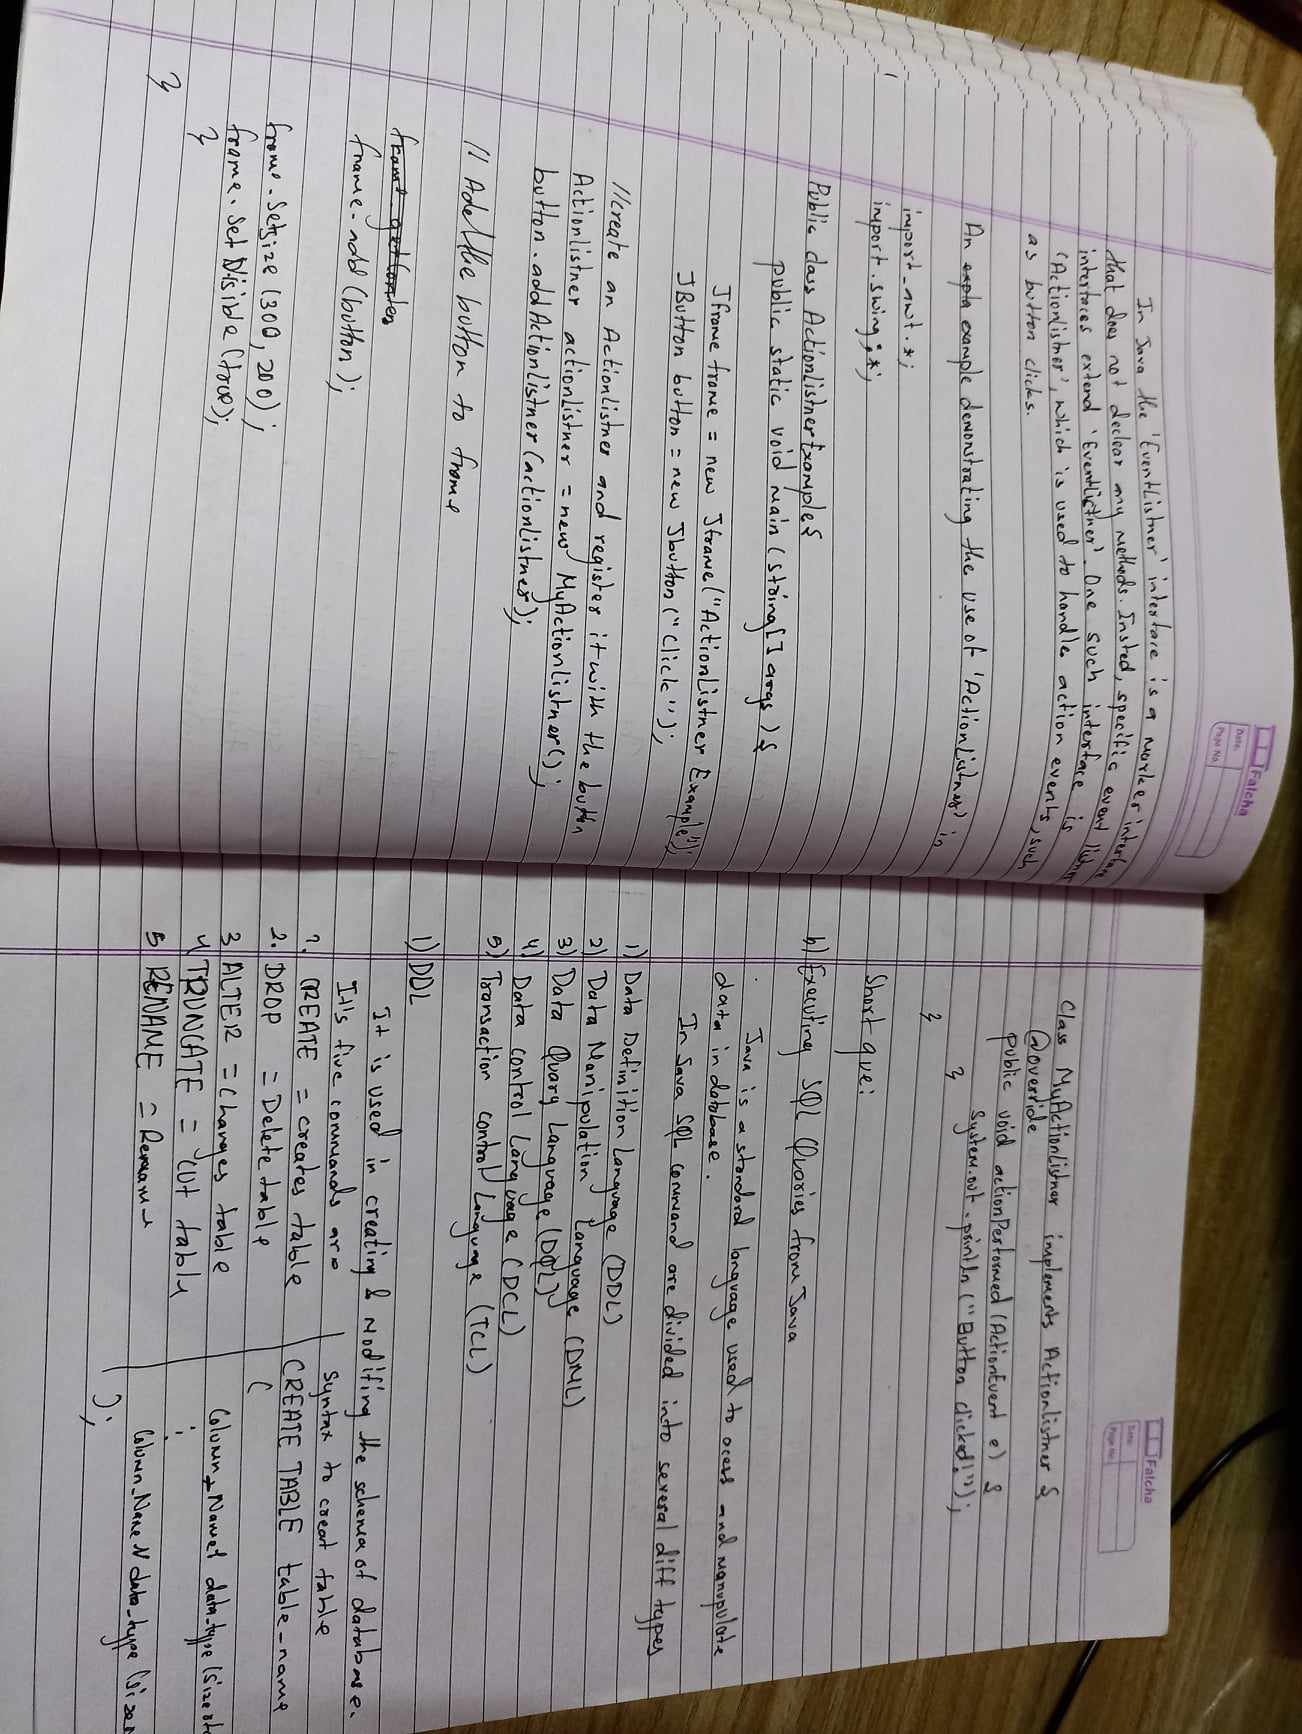 Falcha
Date:
Page No.
In Java the 'EventListner' interface is a marker interface
that does not declear any methods. Insted, specific event
interfaces extend 'EventListner'. One such interface is
'Actionlistner', which is used to handle action events, such
as button clicks.
An example demonstrating the use of 'ActionListner' in
import.awt.*;
import.swing.*;
Public class ActionListnerExample{
public static void main (string[] args) {
Jframe frame = new Jframe("ActionListner Example");
JButton button = new Jbutton("Click");
//create an Actionlistner and register it with the button
Actionlistner actionlistner = new MyActionlistner();
button.addActionlistner(actionlistner);
// Add the button to frame
frame.add(button);
frame.setsize(300, 200);
frame.setVisible(true);
}
}
Falcha
Date:
Page No.
Class MyActionlistner implements Actionlistner {
@override
public void actionPerformed (ActionEvent e) {
System.out.println("Button clicked!");
}
}
Short que:
b) Executing SQL Quaries from Java
Java is a standard language used to acess and manupulate
data in database.
In Java SQL command are divided into several diff types
1) Data Definition Language (DDL)
2) Data Manipulation Language (DML)
3) Data Quary Language (DQL)
4) Data control Language (DCL)
5) Transaction control Language (TCL)
1) DDL
It is used in creating & Modifing the schema of database.
It's five commands are
1. CREATE = creates table
2. DROP = Delete table
3 ALTER = Changes table
4 TRUNCATE = cut table
5 RENAME = Rename
syntax to creat table
CREATE TABLE table_name
(
Column_Name1 data_type (size
:
Column_Name N data_type (size
);